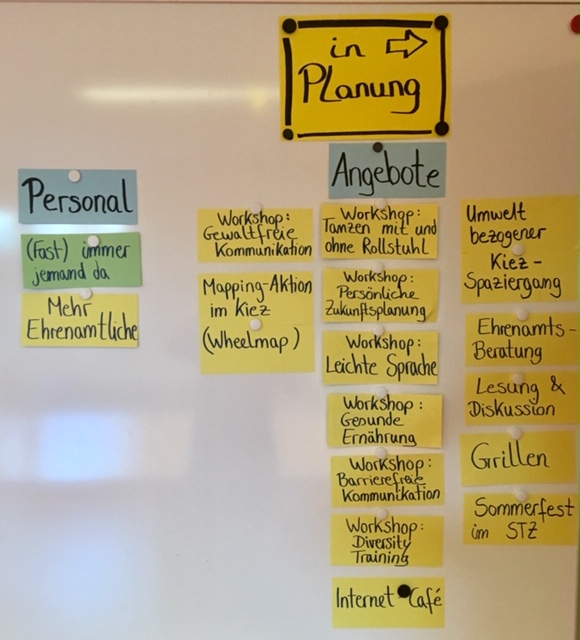 in
Planung
Personal
(Fast) immer
jemand da
Mehr
Ehrenamtliche
Angebote
Workshop:
Gewaltfreie
Kommunikation
Mapping-Aktion
im Kiez
(Wheelmap)
Workshop:
Tanzen mit und
ohne Rollstuhl
Workshop:
Persönliche
Zukunftsplanung
Workshop:
Leichte Sprache
Workshop:
Gesunde
Ernährung
Workshop:
Barrierefreie
Kommunikation
Workshop:
Diversity
Training
Internet Café
Umwelt
bezogener
Kiez-
Spaziergang
Ehrenamts-
Beratung
Lesung &
Diskussion
Grillen
Sommerfest
im STZ